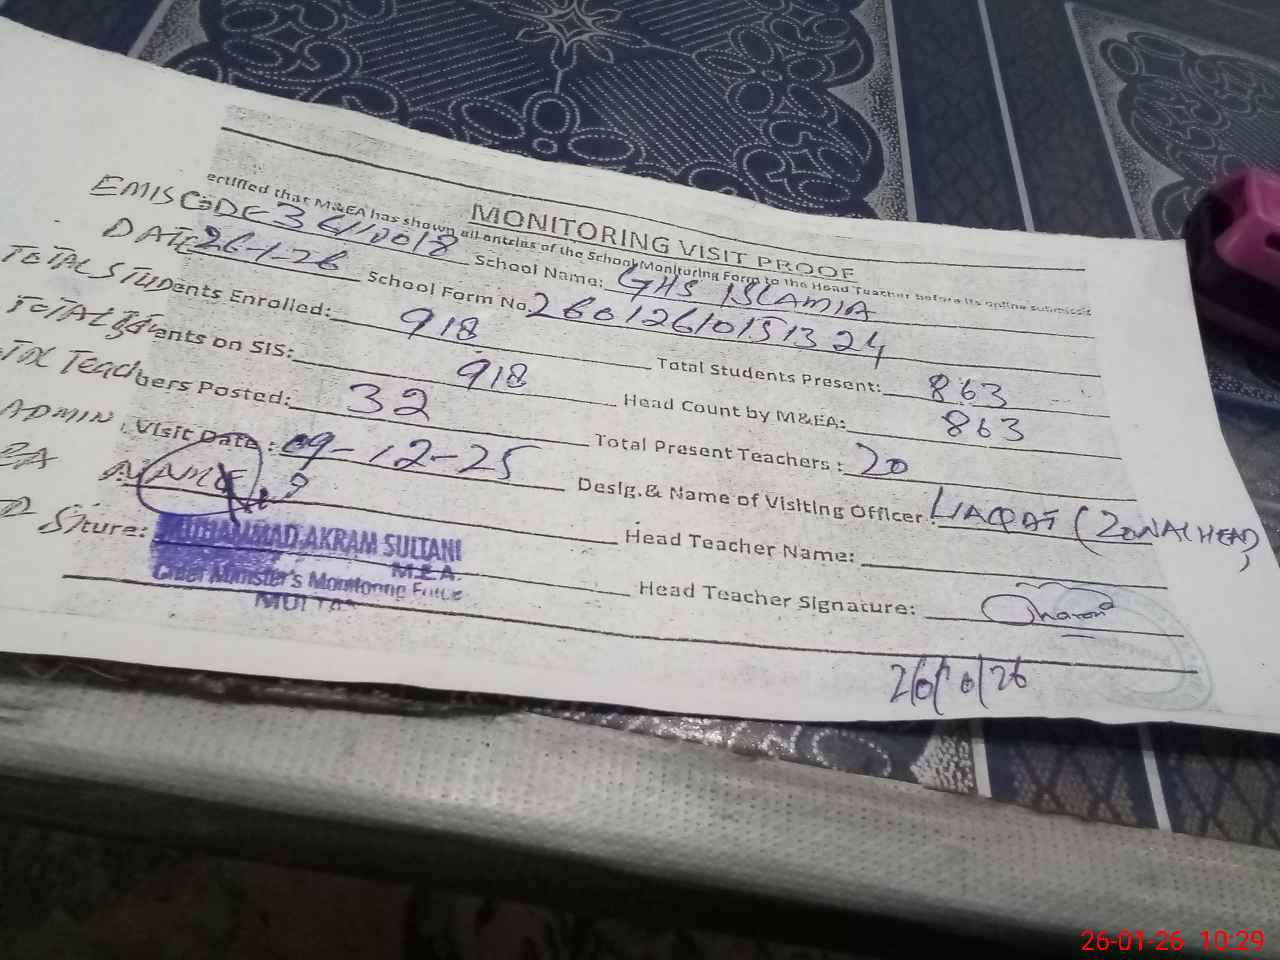 MONITORING VISIT PROOF
ertified that M&EA has shown all entries of the School Monitoring Form to the Head Teacher before its online submissi
EMIS CODE 36110018 School Name: GHS ISLAMIA
DATE 26-1-26 School Form No. 26012610151324
TOTAL STUDents Enrolled: 918 Total Students Present: 863
TOTAL ents on SIS: 918 Head Count by M&EA: 863
Teachers Posted: 32 Total Present Teachers: 20
ADMIN. Visit Date: 09-12-25 Desig.& Name of Visiting Officer: LIAQAT (ZONAL HEAD)
Head Teacher Name:
ture: Head Teacher Signature:
MUHAMMAD AKRAM SULTANI
M.E.A.
Chief Minister's Monitoring Force
26-01-26 10:29